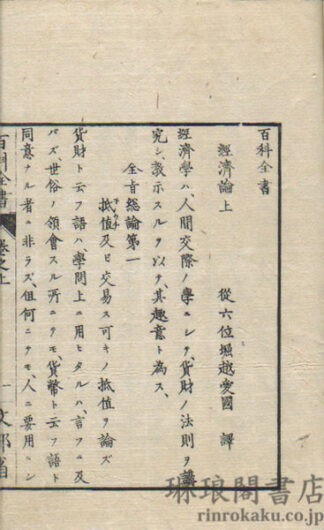 百科全書
經濟論上　從六位堀越愛國　譯
經濟學ハ、人間交際ノ學ニシテ、貨財ノ法則ヲ講
究シ、教示スルヲ以テ、其趣意ト為ス、
全旨總論第一
抵値及ヒ交易ス可キノ抵値ヲ論ズ
貨財ト云フ語ハ、學問上ニ用ヒタルハ、言フニ及
バズ、世俗ノ領會スル所ニテモ、貨幣ト云フ語ト
同意ナル者ニ非ラズ、但何ニテモ、人ニ要用ニシ
百科全書　卷之上　一　文部省
琳琅閣書店
rinrokaku.co.jp